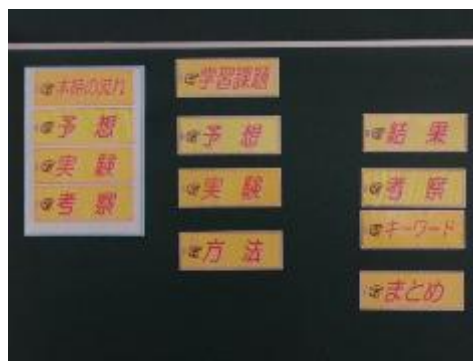 本時の流れ
予想
実験
考察
学習課題
予想
実験
方法
結果
考察
キーワード
まとめ